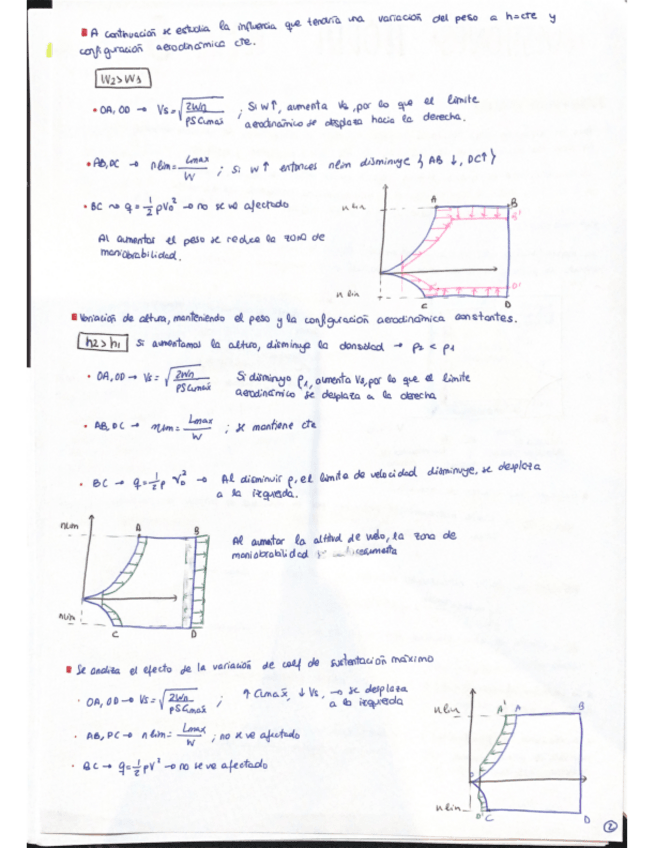 A continuación se estudia la influencia que tendría una variación del peso a h=cte y
configuración aerodinámica cte.
W2>W1
• OA, OD → Vs=√(2Wn/ρSCLmax) ; Si W↑, aumenta Vs, por lo que el límite
aerodinámico se desplaza hacia la derecha.
• AB, DC → nlim= Lmax/W ; si W↑ entonces nlim disminuye { AB ↓, DC↑ }
• BC → q=1/2 ρV0² → no se ve afectado
Al aumentar el peso se reduce la zona de
maniobrabilidad.
n lim
A
B
B'
D'
n lim
C
D
Variación de altura, manteniendo el peso y la configuración aerodinámica constantes.
h2>h1 Si aumentamos la altura, disminuye la densidad → ρ2 < ρ1
• OA, OD → Vs= √(2Wn/ρSCLmax) Si disminuye ρ, aumenta Vs, por lo que el límite
aerodinámico se desplaza a la derecha
• AB, DC → nlim= Lmax/W ; se mantiene cte
• BC → q=1/2 ρ V0² → Al disminuir ρ, el límite de velocidad disminuye, se desplaza
a la izquierda.
nlim
A
B
nlim
C
D
Al aumentar la altitud de vuelo, la zona de
maniobrabilidad aumenta
Se analiza el efecto de la variación de coef de sustentación máximo
• OA, OD → Vs=√(2Wn/ρSCLmax) ; ↑ CLmax, ↓ Vs, → se desplaza
a la izquierda
• AB, DC → nlim= Lmax/W ; no se ve afectado
• BC → q=1/2 ρV² → no se ve afectado
n lim
A'
A
B
n lin
D'
C
D
2